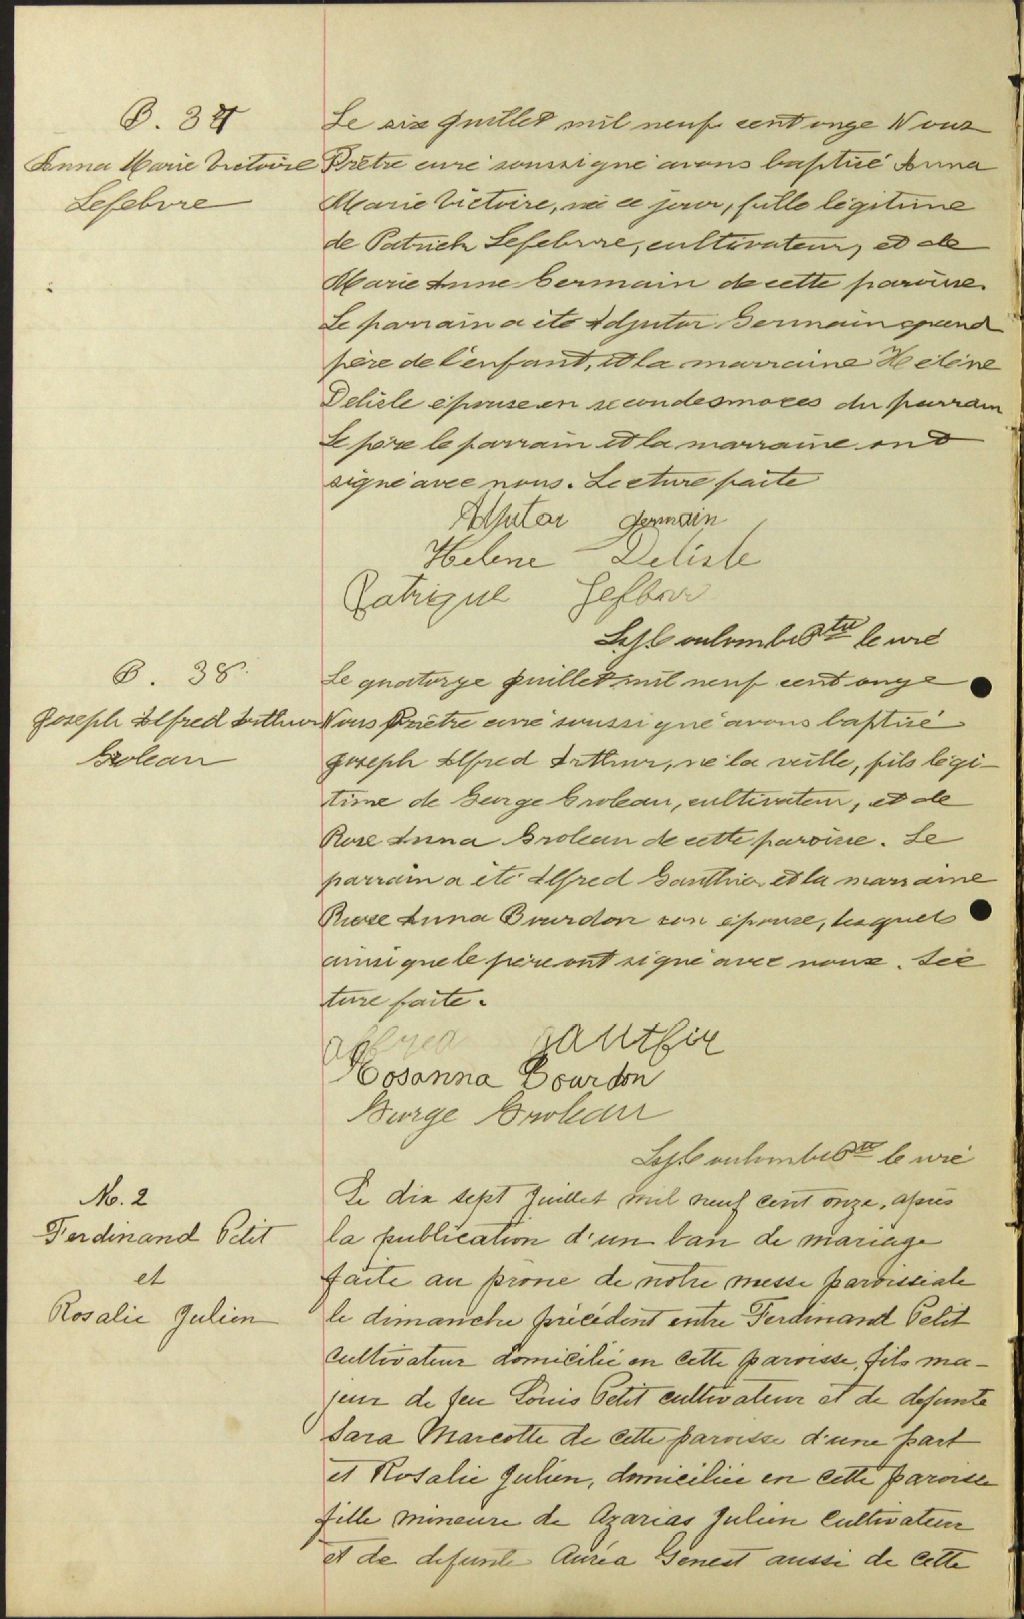 B. 37
Anna Marie Victoire
Lefebvre
Le six juillet mil neuf cent onze Nous
Prêtre curé soussigné avons baptisé Anna
Marie Victoire, né ce jour, fille légitime
de Patrick Lefebvre, cultivateur, et de
Marie Anne Germain de cette paroisse.
Le parrain a été Adjutor Germain grand
père de l'enfant, et la marraine Hélène
Delisle épouse en secondes noces du parrain
Le père le parrain et la marraine ont
signé avec nous. Lecture faite
Adjutor Germain
Helene Delisle
Patrique Lefbvr
L.J. Coulombe Ptre Curé
B. 38.
Joseph Alfred Arthur
Groleau
Le quatorze juillet mil neuf cent onze
Nous Prêtre curé soussigné avons baptisé
Joseph Alfred Arthur, né la veille, fils légi-
time de George Groleau, cultivateur, et de
Rose Anna Groleau de cette paroisse. Le
parrain a été Alfred Gauthier et la marraine
Rose Anna Bourdon son épouse, lesquels
ainsi que le père ont signé avec nous. Lec
ture faite.
alfred gautfir
Rosanna Bourdon
George Groleau
L.J. Coulombe Ptre Curé
M. 2
Ferdinand Petit
et
Rosalie Julien
Le dix sept Juillet mil neuf cent onze, après
la publication d'un ban de mariage
faite au prône de notre messe paroissiale
le dimanche précédent entre Ferdinand Petit
cultivateur domicilié en cette paroisse, fils ma-
jeur de feu Louis Petit cultivateur et de defunte
Sara Marcotte de cette paroisse d'une part
et Rosalie Julien, domiciliée en cette paroisse
fille mineure de Azarias Julien cultivateur
et de defunte Auréa Genest aussi de cette